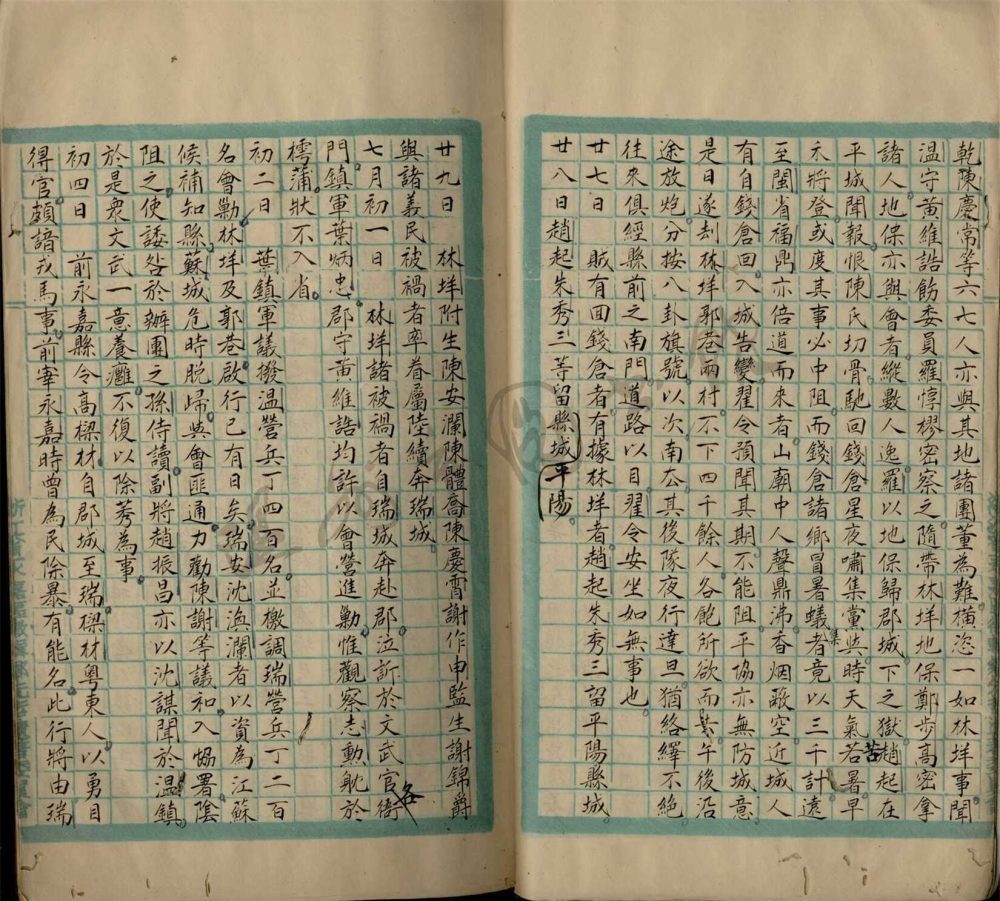 乾陳慶常等六七人亦與其地諸團董為難橫恣一如林垟事聞
溫守黃維誥飭委員羅惇樛密察之隨帶林垟地保鄭步高密拿
諸人地保亦與會者縱數人逸羅以地保歸郡城下之獄趙起在
平城聞報恨陳氏切骨馳回錢倉星夜嘯集黨與時天氣若暑早苦
禾將登或度其事必中阻而錢倉諸鄉冒暑蟻者竟以三千計遠集
至閩省福鼎亦倍道而來者山廟中人聲鼎沸香烟蔽空近城人
有自錢倉回入城告變翟令預聞其期不能阻平協亦無防城意
是日遂刦林垟郭巷兩村不下四千餘人各飽所欲而縶午後沿
途放炮分按八卦旗號以次南太其後隊夜行達旦猶絡繹不絕
往來俱經縣前之南門道路以目翟令安坐如無事也
廿七日　賊有回錢倉者有據林垟者趙起朱秀三留平陽縣城
廿八日趙起朱秀三等留縣城平陽
廿九日　林垟附生陳安瀾陳體喬陳慶霄謝作申監生謝錦爵
與諸義民被禍者率眷屬陸續奔瑞城
七月初一日　林垟諸被禍者自瑞城奔赴郡泣訴於文武官衙各
門鎮軍葉炳忠郡守黃維誥均許以會營進勦惟觀察志勳躭於
樗蒲狀不入省
初二日　葉鎮軍議撥溫營兵丁四百名並檄調瑞營兵丁二百
名會勦林垟及郭巷啟行已有日矣瑞安沈渔瀾者以資為江蘇
候補知縣蘇城危時脫歸與會匪通力勸陳謝等議和入協署陰
阻之使諉咎於辦團之孫侍讀副將趙振昌亦以沈謀聞於溫鎮
於是眾文武一意養癰不復以除莠為事
初四日　前永嘉縣令高樑材自郡城至瑞樑材粵東人以勇目
得官頗諳戎馬事前宰永嘉時曾為民除暴有能名此行將由瑞